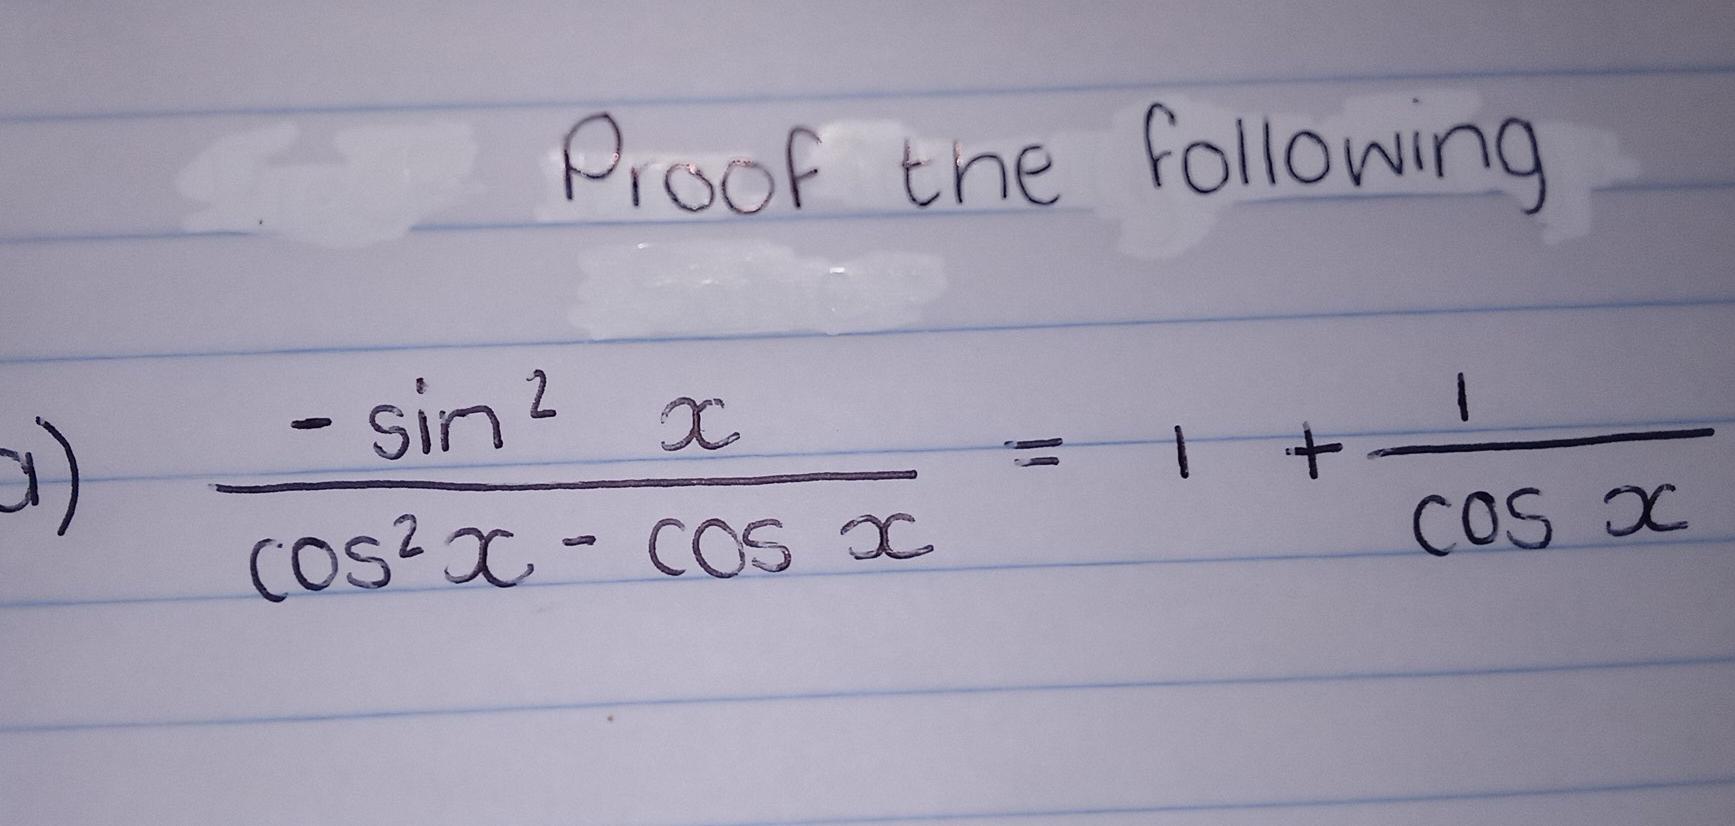 Proof the following
a) \frac{-\sin^2 x}{\cos^2 x - \cos x} = 1 + \frac{1}{\cos x}